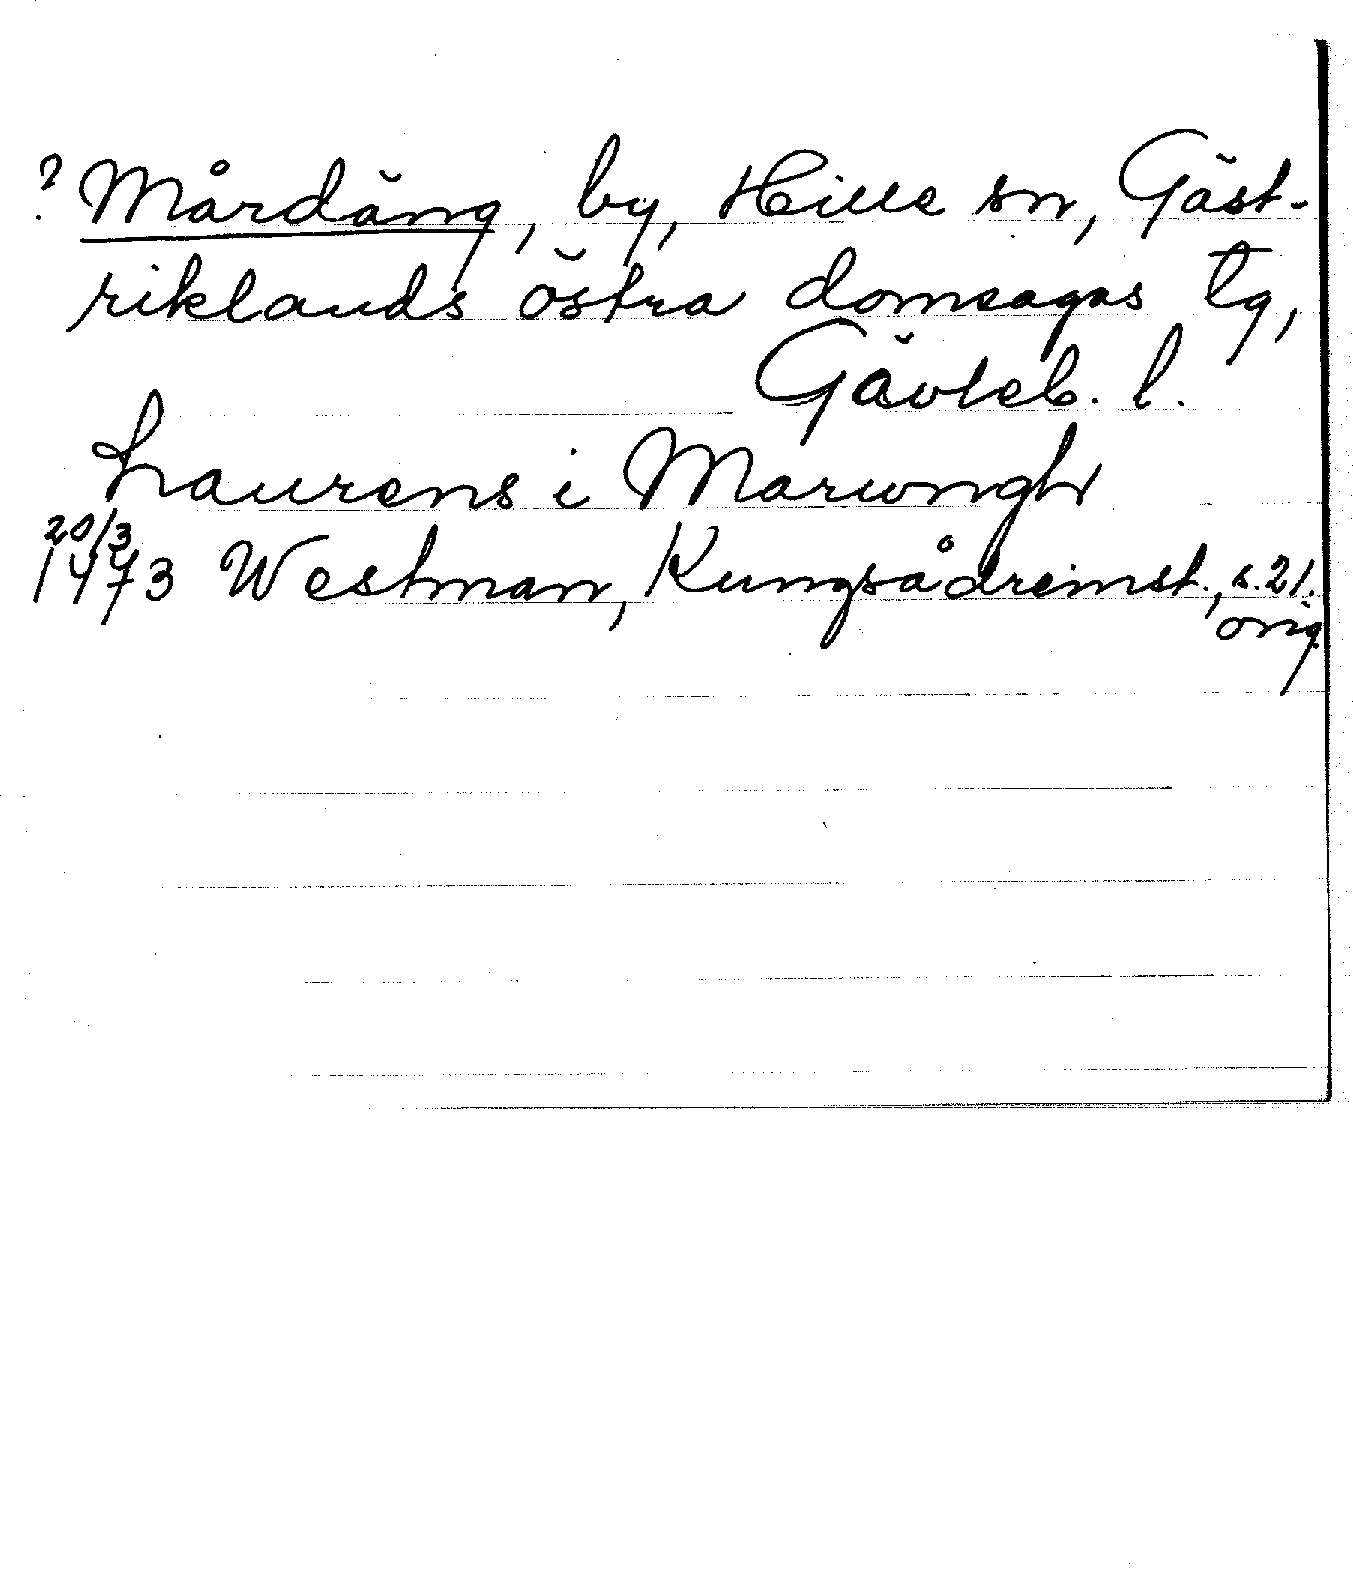 ? Mårdäng, by, Hille sn, Gäst-
riklands östra domsagas tg,
Gävleb. l.
Laurens i Marwngh
20/3
1473 Westman, Kungsådreinst., s. 21.
orig.